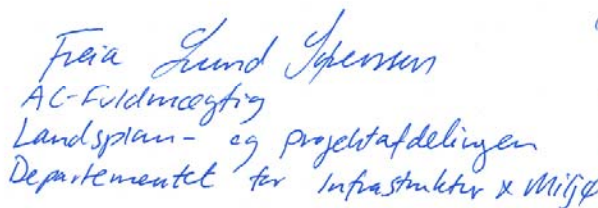 Freia Lund Sørensen
AC-Fuldmægtig
Landsplan- og projektafdelingen
Departementet for Infrastruktur & Miljø